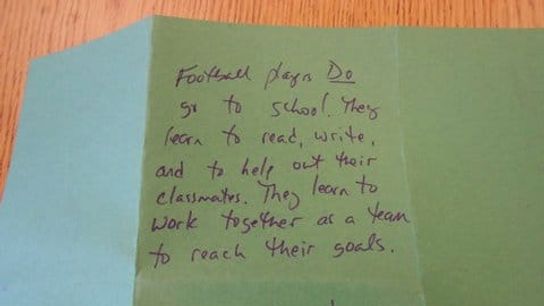 Football players Do
go to school. They
learn to read, write,
and to help out their
classmates. They learn to
work together as a team
to reach their goals.